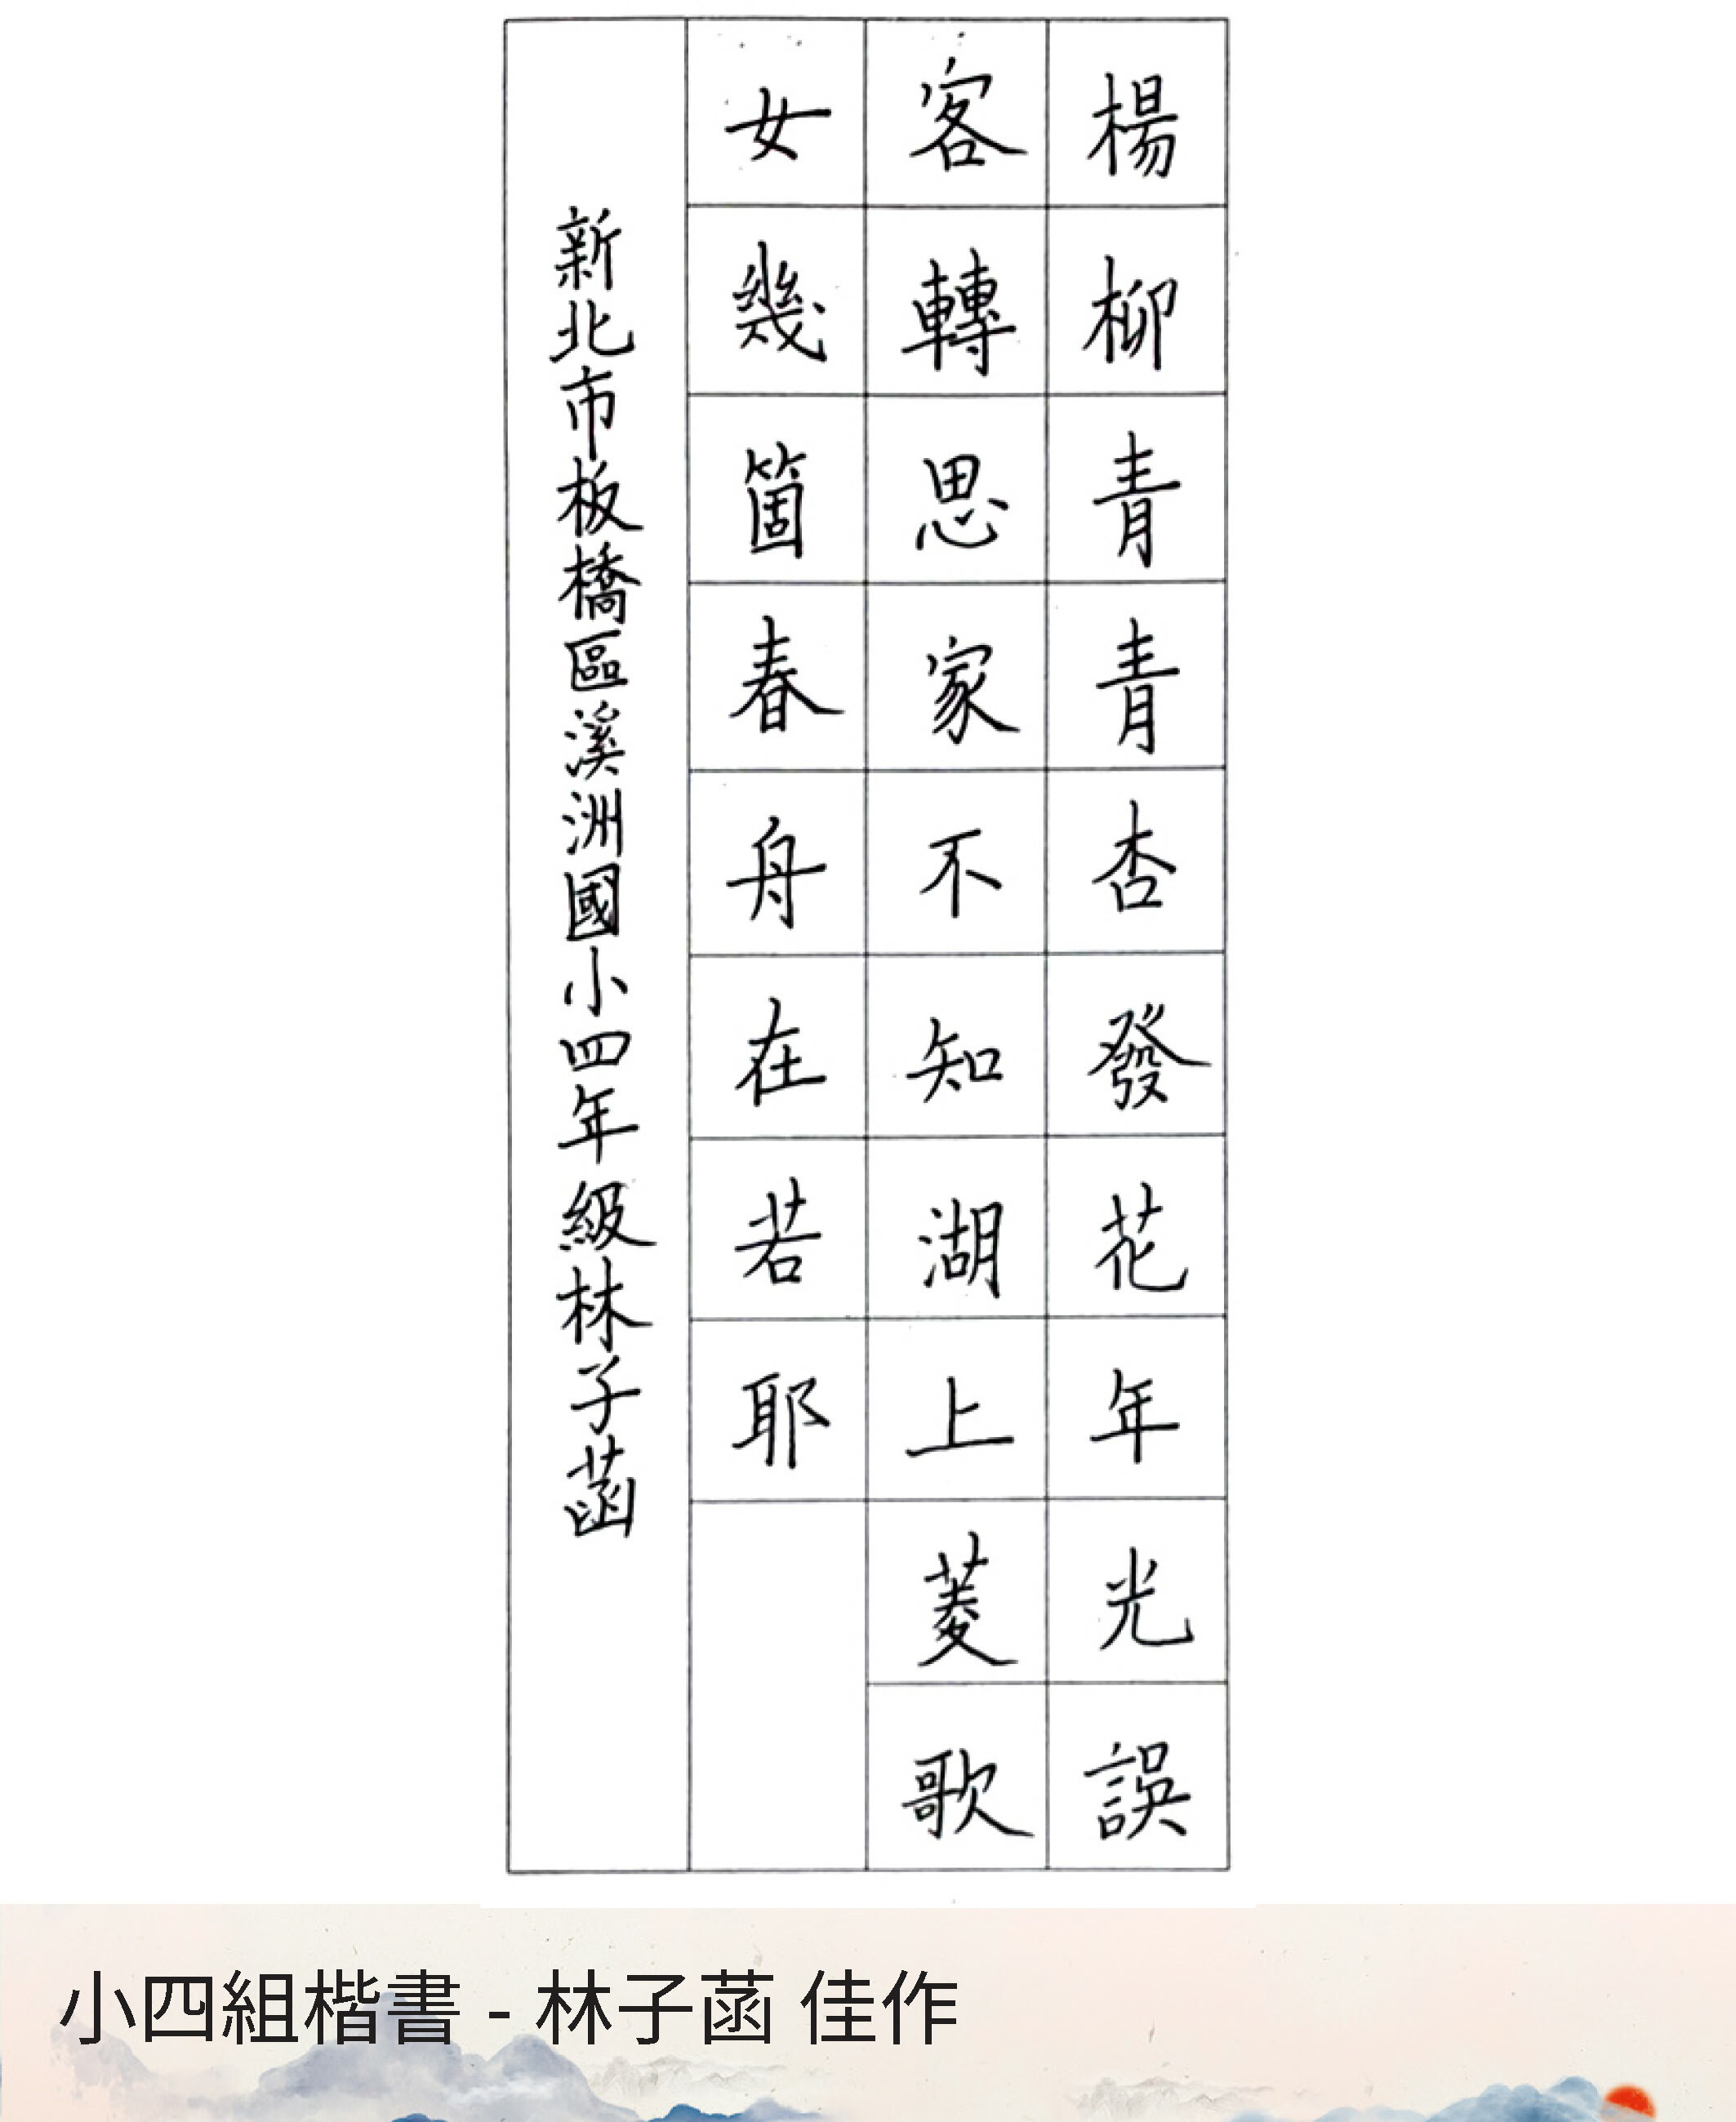 楊柳青青杏發花年光誤
客轉思家不知湖上菱歌
女幾箇春舟在若耶
新北市板橋區溪洲國小四年級林子菡
小四組楷書 - 林子菡 佳作